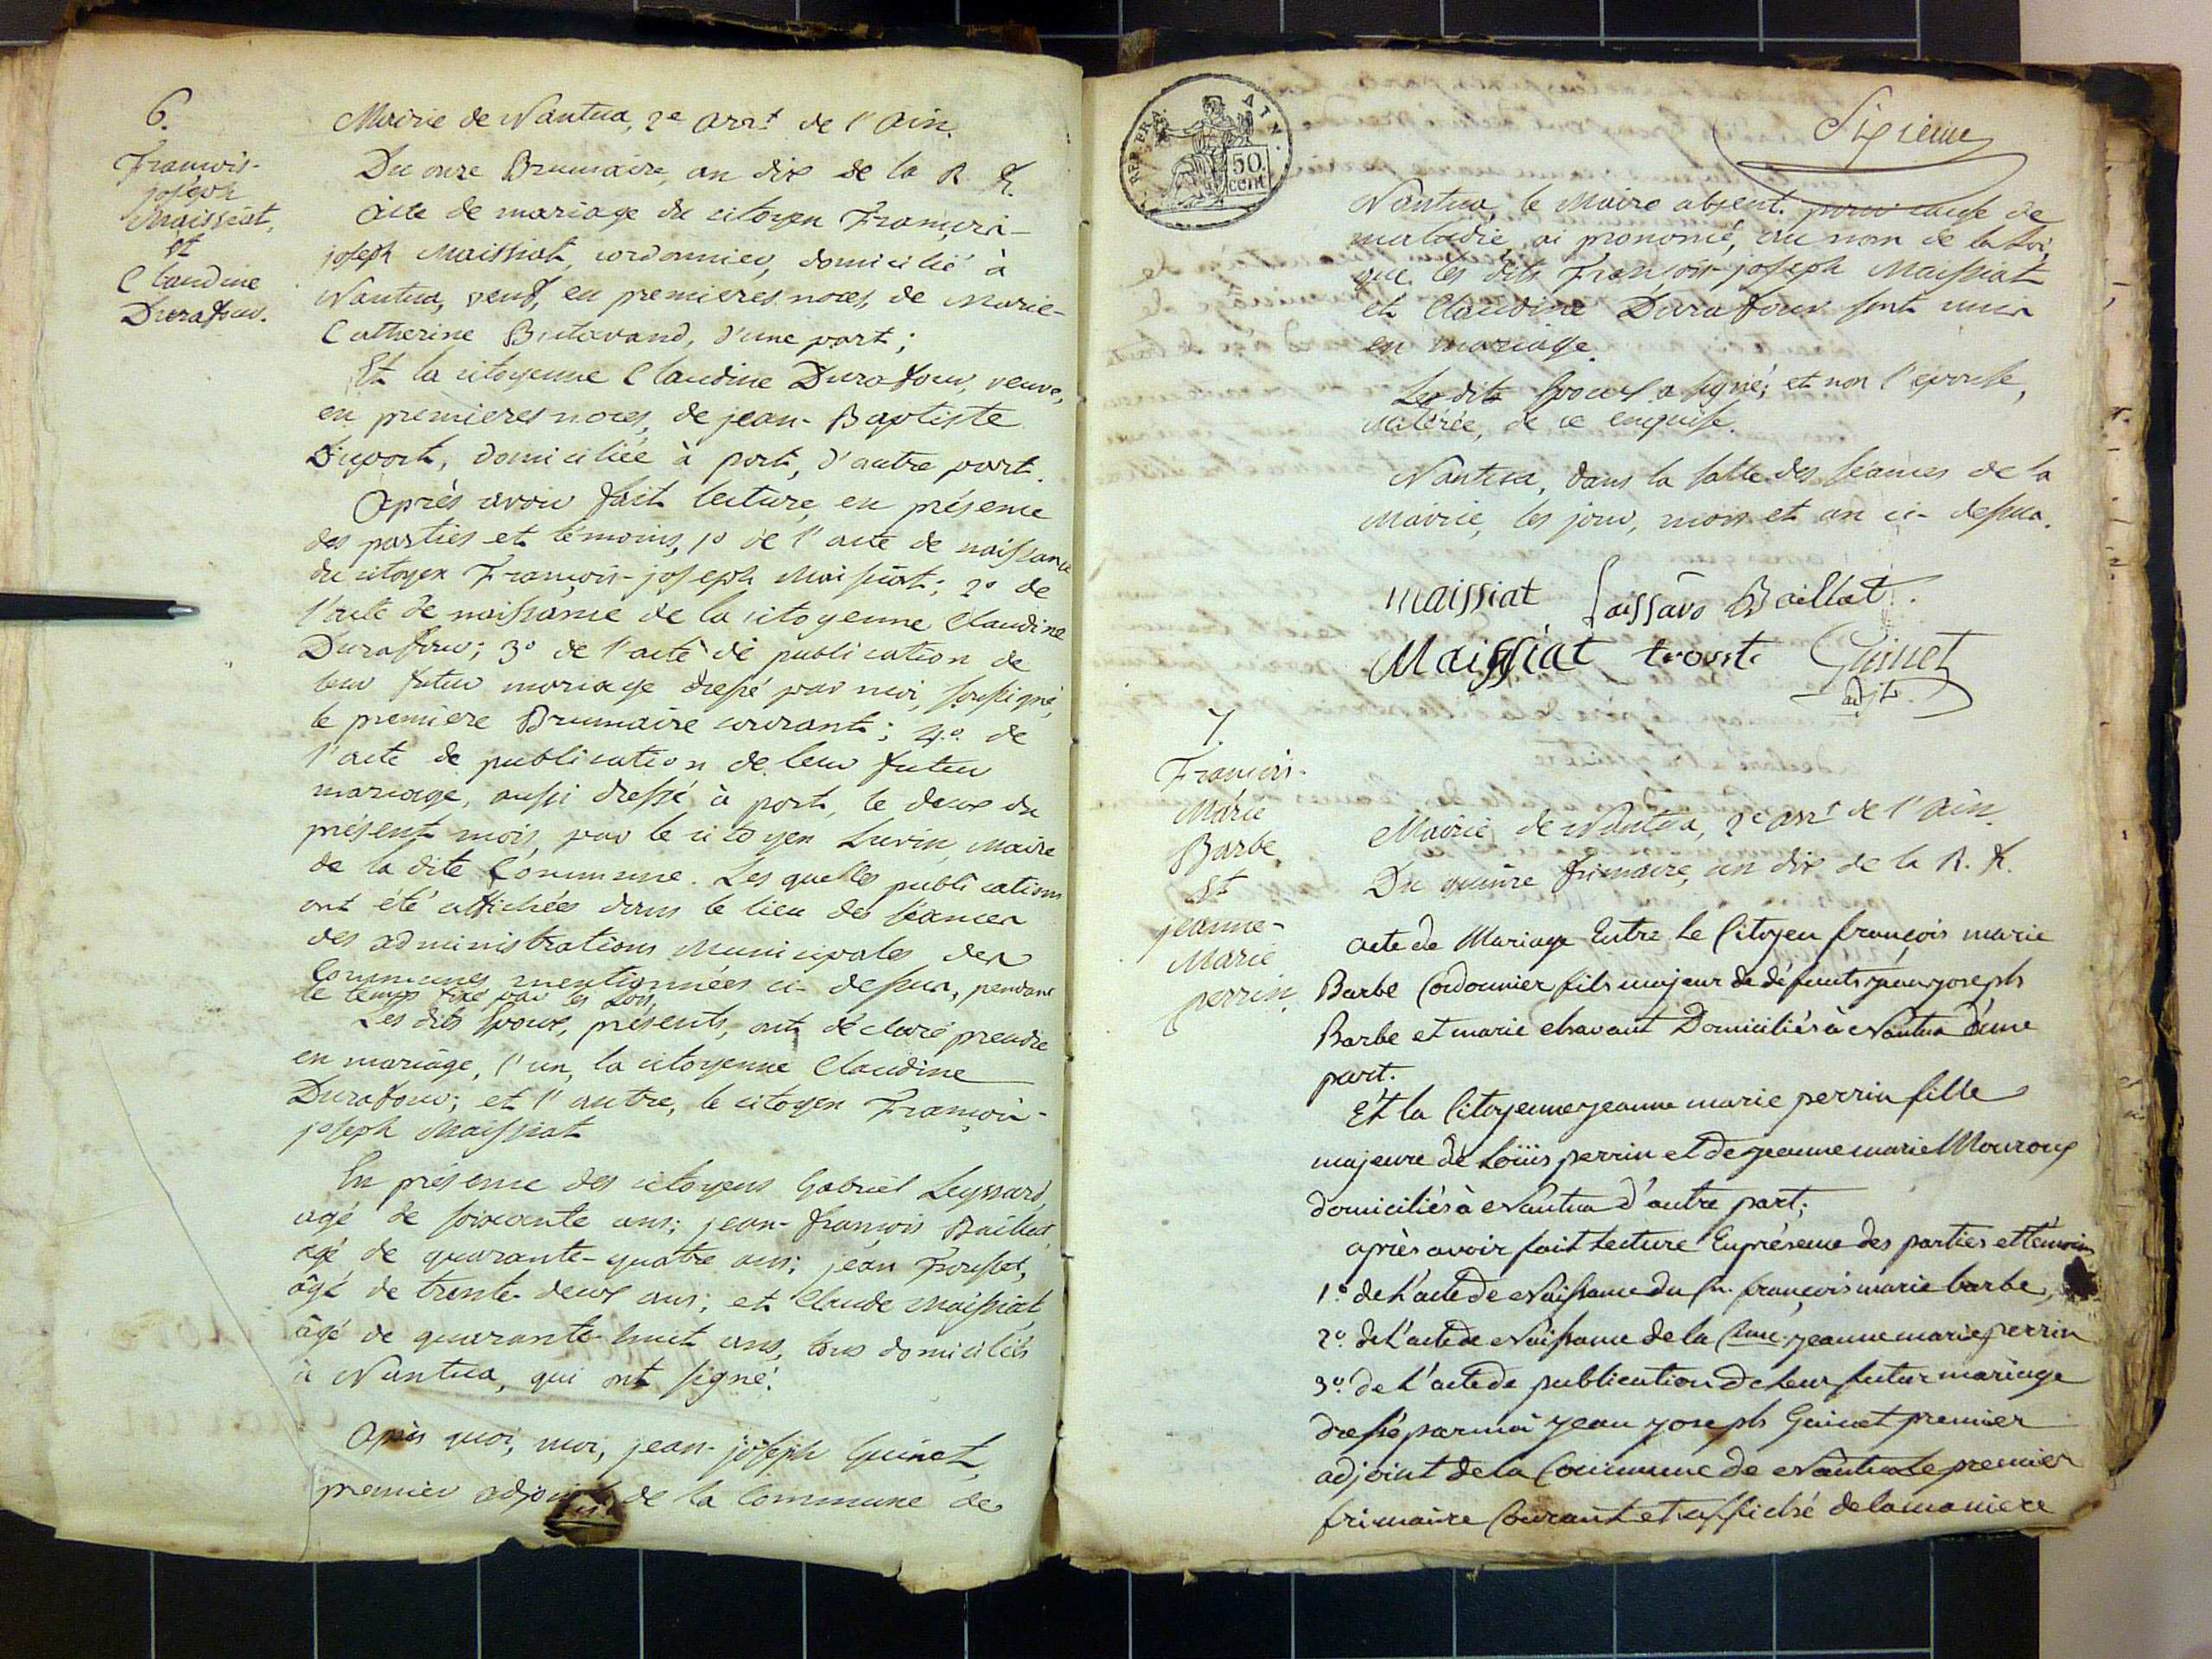 6.
François-
joseph
Maissiat,
Et
Claudine
Durafour.
Mairie de Nantua, 2e arrt de l'Ain.
Du onze Brumaire, an dix de la R. F.
Acte de mariage du citoyen François-
joseph Maissiat, cordonnier, domicilié à
Nantua, veuf, en premieres noces, de Marie-
Catherine Butavand, d'une part;
Et la citoyenne Claudine Durafour, veuve,
en premieres noces, de jean-Baptiste
Duport, domiciliée à port, d'autre part.
Après avoir fait lecture, en présence
des parties et témoins, 1o de l'acte de naissance
du citoyen François-joseph Maissiat; 2o de
l'acte de naissance de la citoyenne Claudine
Durafour; 3o de l'acte de publication de
leur futur mariage dressé par moi, soussigné,
le premiere Brumaire courant; 4.o de
l'acte de publication de leur futur
mariage, aussi dressé à port, le deux du
présent mois, par le citoyen Juvin, Maire
de la dite Commune. Les quelles publications
ont été affichées dans le lieu des séances
des administrations Municipales des
Communes mentionnées ci-dessus, pendant
le temps fixé par les Lois.
Les dits Epoux, présents, ont déclaré prendre
en mariage, l'un, la citoyenne Claudine
Durafour; et l'autre, le citoyen François-
joseph Maissiat
En présence des citoyens Gabriel Leyssard,
agé de soixante ans; jean-françois Baillat,
agé de quarante-quatre ans; jean Troustet,
âgé de trente-deux ans; et Claude Maissiat,
âgé de quarante-huit ans, tous domiciliés
à Nantua, qui ont signé.
Après quoi, moi, jean-joseph Guinet,
premier adjoint de la Commune de
REP. FRA. AIN.
50.
cent
Sixieme
Nantua, le Maire absent pour cause de
maladie, ai prononcé, au nom de la Loi,
que les dits François-joseph Maissiat
et Claudine Durafour sont unis
en mariage.
Les dits Epoux a signé; et non l'epouse,
illitérée, de ce enquise.
Nantua, dans la salle des séances de la
Mairie, les jour, mois et an ci-dessus.
maissiat Laissard Baillat.
Maissiat troust Guinet
adjt.
7.
François-
Marie
Barbe
Et
jeanne-
Marie
perrin.
Mairie de Nantua, 2e arrt de l'Ain.
Du quinze frimaire, an dix de la R. F.
acte de Mariage Entre Le Citoyen françois marie
Barbe Cordonnier fils majeur de défunts jean joseph
Barbe et marie chavant Domiciliés à Nantua d'une
part.
Et la Citoyenne jeanne marie perrin fille
majeure de Loüis perrin et de jeanne marie Mouroux
domiciliés à Nantua d'autre part;
après avoir fait Lecture En présence des parties et témoins
1.o de L'acte de Naissance du Cn. françois marie barbe,
2.o de L'acte de Naissance de la Cnne. jeanne marie perrin
3.o de L'acte de publication de Leur futur mariage
dressé par moi jean joseph Guinet premier
adjoint de la Commune de Nantua Le premier
frimaire Courant et affiché de la maniere